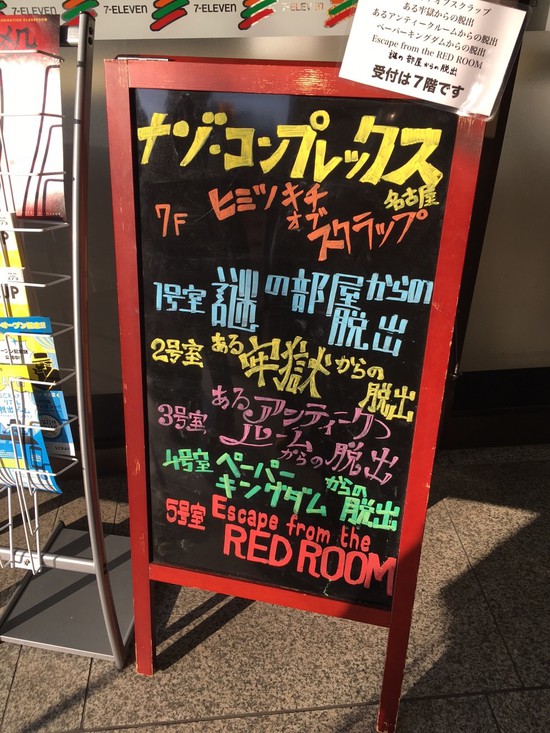 7-ELEVEN
7-ELEVEN
7-ELEVEN
ブスクラップ
ある牢獄からの脱出
あるアンティークルームからの脱出
ペーパーキングダムからの脱出
Escape from the RED ROOM
謎の部屋からの脱出
受付は7階です
ナゾ・コンプレックス
名古屋
7F ヒミツキチ
オブ
スクラップ
1号室 謎の部屋からの
脱出
2号室 ある牢獄からの
脱出
3号室 あるアンティーク
ルームからの脱出
4号室 ペーパー
キングダムからの脱出
5号室 Escape from the
RED ROOM